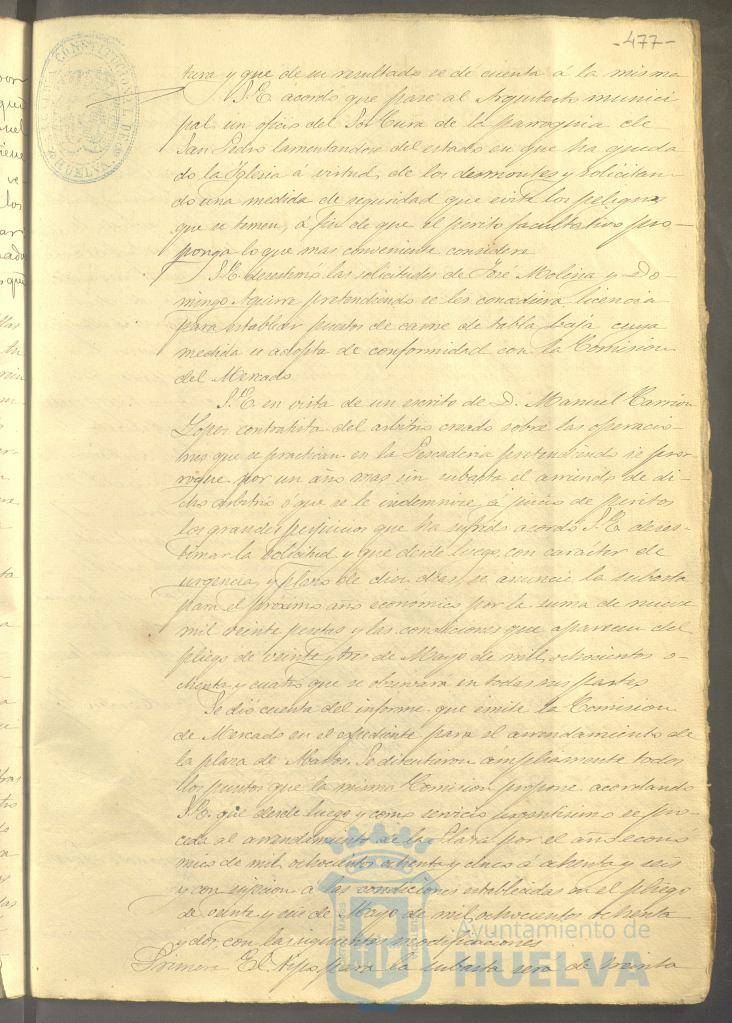 -477-
ALCALDIA CONSTITUCIONAL DE HUELVA
tura y que de su resultado se de cuenta á la misma
S.E. acordó que pase al Arquitecto munici
pal un oficio del Sor Cura de la parroquia de
San Pedro lamentandose del estado en que ha queda
do la Iglesia á virtud de los desmontes y solicitan-
do una medida de seguridad que evite los peligros
que se temen, á fin de que el perito facultativo pro-
ponga lo que mas conveniente considere
S.E. desestimó las solicitudes de José Molina y Do-
mingo Aguirre pretendiendo se les concediera licencia
para establecer puestos de carne de tabla baja cuya
medida se adopta de conformidad con la Comision
del Mercado
S.E. en vista de un escrito de D. Manuel Carrion
Lopez contratista del arbitrio creado sobre las operacio-
nes que se practican en la Pescaderia pretendiendo se pror
rogue por un año mas sin subasta el arriendo de di-
cho arbitrio ó que se le indemnice á juicio de peritos
los grandes perjuicios que ha sufrido acordó S.E. deses-
timar la solicitud y que desde luego con carácter de
urgencia y plazo de diez dias se anuncie la subasta
para el próximo año economico por la suma de nueve
mil veinte pesetas y las condiciones que aparecen del
pliego de veinte y tres de Mayo de mil ochocientos o-
chenta y cuatro que se observará en todas sus partes
Se dió cuenta del informe que emite la Comision
de Mercado en el expediente para el arrendamiento de
la plaza de Abastos. Se discutieron ámpliamente todos
los puntos que la misma Comision propone acordando
S.E. que desde luego y como servicio urgentisimo se pro-
ceda al arrendamiento de la Plaza por el año econó
mico de mil ochocientos ochenta y cinco á ochenta y seis
y con sujecion á las condiciones establecidas en el pliego
de veinte y seis de Mayo de mil ochocientos ochenta
y dos con las siguientes modificaciones
Primera El tipo para la subasta será de treinta
Ayuntamiento de
HUELVA